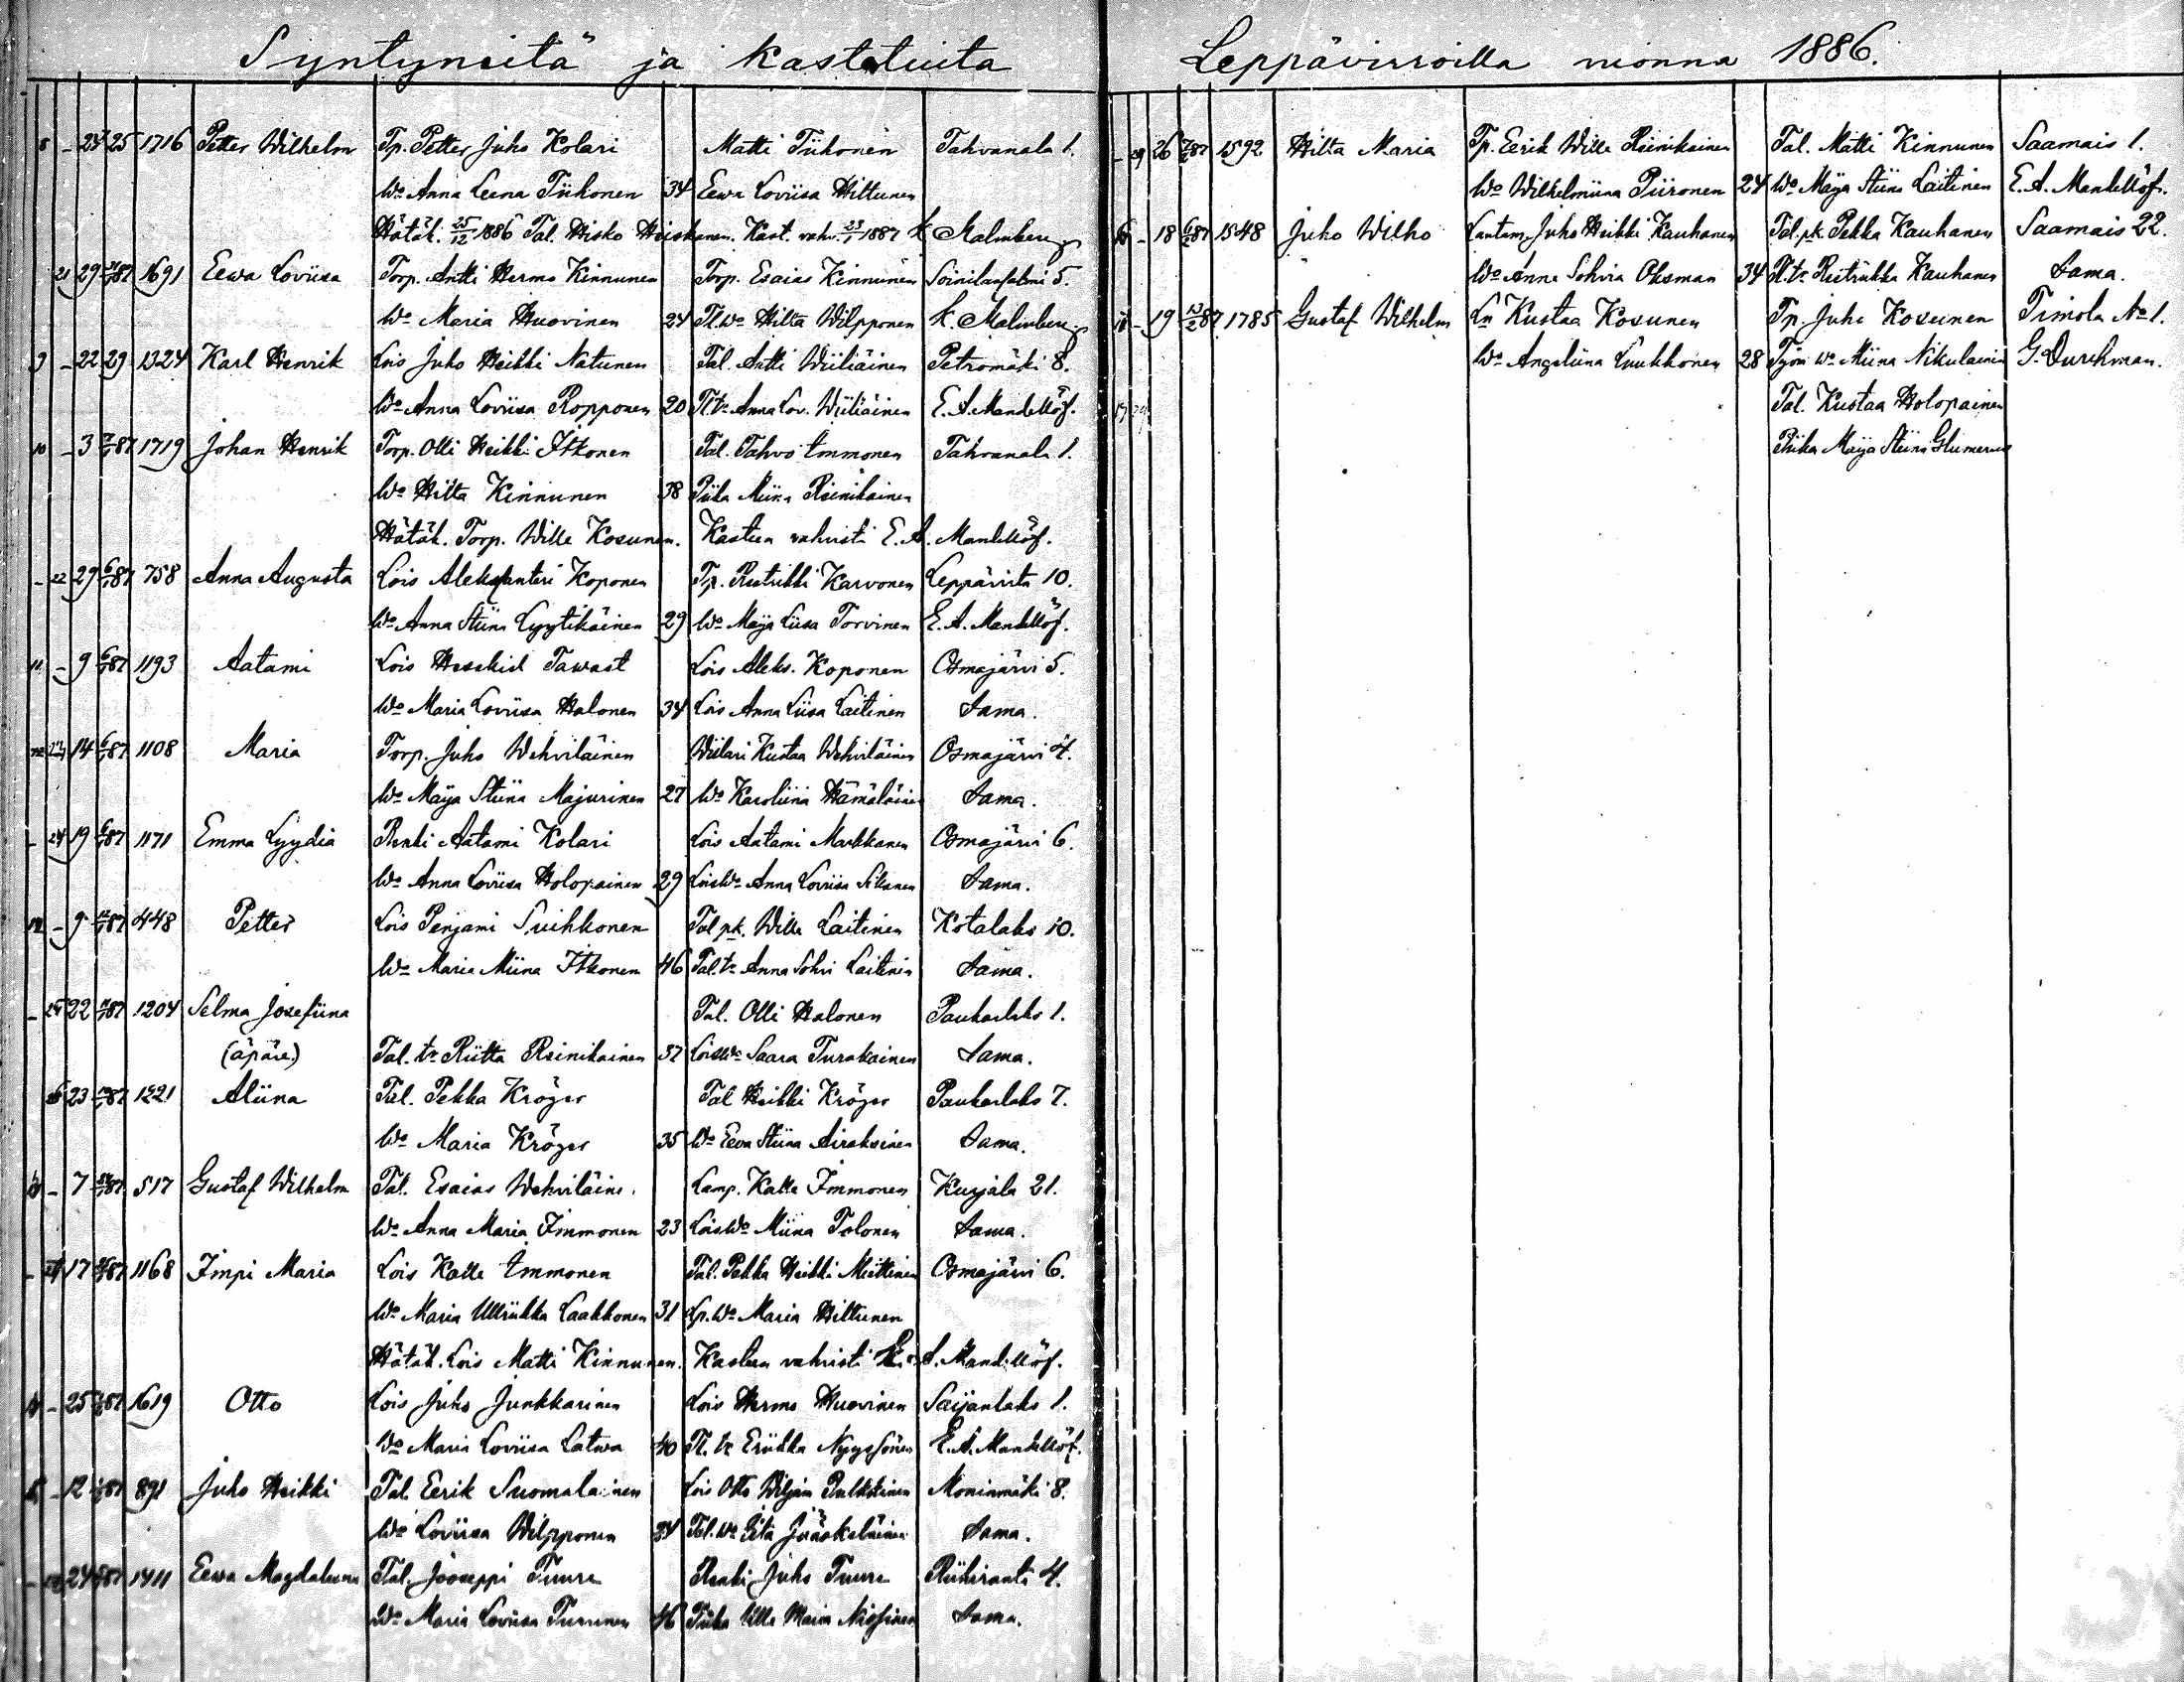 Syntyneitä ja kastetuita
8 - 24 25 1716 Petter Wilhelm Tp. Petter Juho Kolari Matti Tiihonen Tahvanala 1.
Wo Anna Leena Tiihonen 34 Eewa Loviisa Hiltunen
Hätäk. 25/12 1886 Tal. Hisko Heiskanen. Kast. vahv. 23/1 1887 K Malmberg
21 29 87 1691 Eewa Loviisa Torp. Antti Hermo Kinnunen Torp. Esaias Kinnunen Soinilansalmi 5.
Wo Maria Huovinen 24 Tl. Wo Hilta Wilpponen K. Malmberg
9 - 22 29 1324 Karl Henrik Lois Juho Heikki Natunen Tal. Antti Wiiliäinen Petromäki 8.
Wo Anna Loviisa Ropponen 20 Tl. tr Anna Lov. Wiiliäinen E. A. Mandellöf.
10 - 3 87 1719 Johan Henrik Torp. Olli Heikki Itkonen Tal. Tahvo Immonen Tahvanala 1.
Wo Hilta Kinnunen 38 Piika Miina Reinikainen
Hätäk. Torp. Wille Kosunen. Kasteen vahvisti E. A. Mandellöf.
- 22 29 6/1 87 758 Anna Augusta Lois Aleksanteri Koponen Tp. Ruthikki Karvonen Leppävirta 10.
Wo Anna Stiina Lyytikäinen 29 Wo Maija Liisa Torvinen E. A. Mandellöf.
11 - 9 6/1 87 1193 Aatami Lois Hesekiel Tawast Lois Aleks. Koponen Osmajärvi 5.
Wo Maria Loviisa Halonen 34 Lois Anna Liisa Laitinen Sama.
14 6/1 87 1108 Maria Torp. Juho Wehviläinen Wiilari Kustaa Wehviläinen Osmajärvi 4.
Wo Maija Stiina Majurinen 27 Wo Karoliina Hämäläinen Sama.
- 24 19 6/1 87 1171 Emma Lyydia Renki Aatami Kolari Lois Aatami Markkanen Osmajärvi 6.
Wo Anna Loviisa Holopainen 29 Lois Wo Anna Loviisa Sikanen Sama.
12 - 9 87 448 Petter Lois Penjami Suihkonen Tal pk. Wille Laitinen Kotalaks 10.
Wo Maria Miina Itkonen 46 Tal. tr Anna Sohvi Laitinen Sama.
- 25 22 87 1204 Selma Josefiina Tal. Olli Halonen Paukarlaks 1.
(äpäre) Tal. tr Riitta Reinikainen 37 Lois Wo Saara Turakainen Sama.
26 23 87 1221 Aliina Tal. Pekka Kröger Tal Heikki Kröger Paukarlaks 7.
Wo Maria Kröger 35 Wo Eeva Stiina Airaksinen Sama.
13 - 7 87 517 Gustaf Wilhelm Tal. Esaias Wehviläine. Lamp. Kalle Immonen Kurjala 21.
Wo Anna Maria Immonen 23 Lois Wo Miina Tolonen Sama.
- 17 87 1168 Impi Maria Lois Kalle Immonen Tal. Pekka Heikki Miettinen Osmajärvi 6.
Wo Maria Ulriikka Laakkonen 31 Lp. Wo Maria Hiltunen
Hätäk. Lois Matti Kinnunen. Kasteen vahvisti E. A. Mandellöf.
14 - 25 87 1619 Otto Lois Juho Junkkarinen Lois Hermo Huovinen Saijanlaks 1.
Wo Maria Loviisa Latwa 40 Tl. tr Eriikka Nyyssönen E. A. Mandellöf.
- 12 87 891 Juho Heikki Tal Eerik Suomalainen Lois Otto Wiljam Pulkkinen Moninmäki 8.
Wo Loviisa Wilpponen 34 Tal. Wo Eeta Jääskeläinen Sama.
24 87 1411 Eewa Magdaleena Tal. Jooseppi Tuure Renki Juho Tuure Riihiranta 4.
Wo Maria Loviisa Turunen 46 Piika Ulla Maria Niskanen Sama.
Leppävirroilla wuonna 1886.
- 29 26 87 1592 Hilta Maria Tp. Eerik Wille Reinikainen Tal. Matti Kinnunen Saamais 1.
Wo Wilhelmiina Piironen 24 Wo Maija Stiina Laitinen E. A. Mandellöf.
16 - 18 87 1548 Juho Wilho Lantam. Juho Heikki Kauhanen Tal. pk. Pekka Kauhanen Saamais 22.
Wo Anna Sohvia Oksman 34 Tl. tr Reetriikka Kauhanen Sama.
- 19 13/2 87 1785 Gustaf Wilhelm Ln Kustaa Kosunen Tp. Juho Kosunen Timola No 1.
Wo Angeliina Luukkonen 28 Työm Wo Miina Nikulainen G. Durchman.
Tal. Kustaa Holopainen
Piika Maija Stiina Glumerus